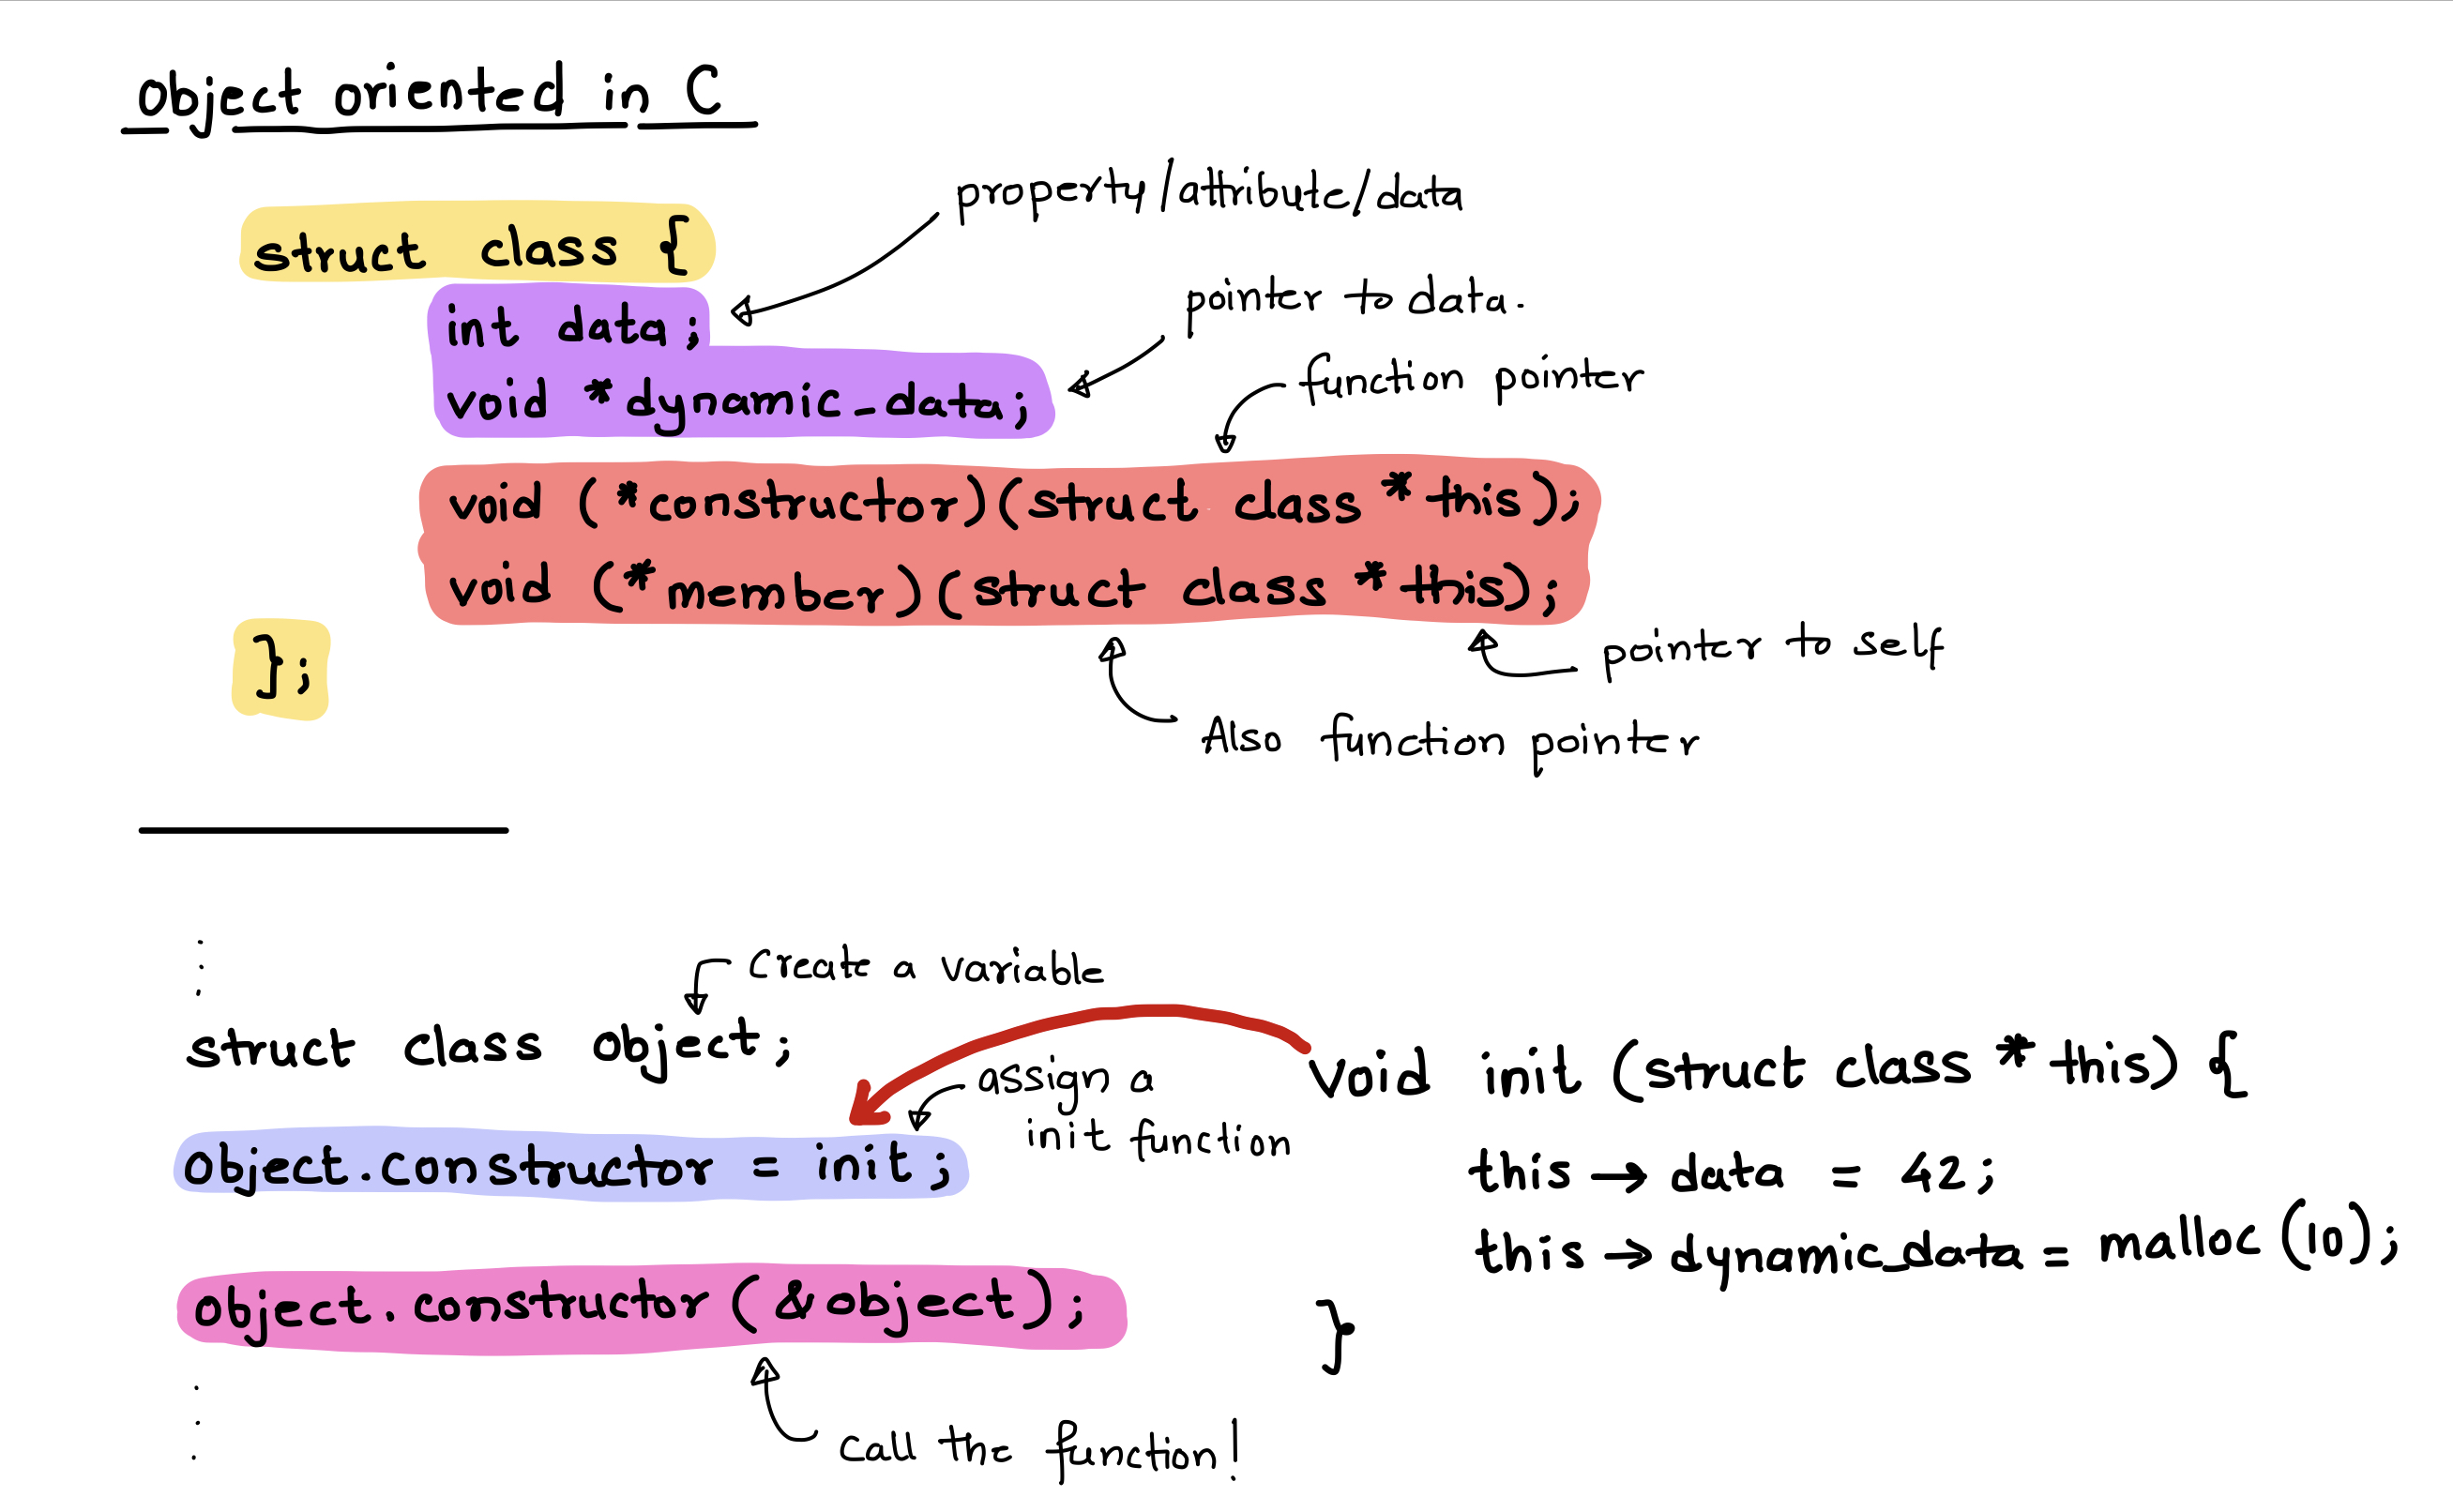 object oriented in C
property/attribute/data
struct class {
int data;
pointer to data.
void *dynamic_data;
function pointer
void (*constructor)(struct class *this);
void (*member)(struct class *this);
};
pointer to self
Also function pointer
Create a variable
struct class object;
assign a
init function
object.constructor = init;
object.constructor (&object);
call the function!
void init (struct class *this) {
this → data = 42;
this → dynamic_data = malloc (10);
}